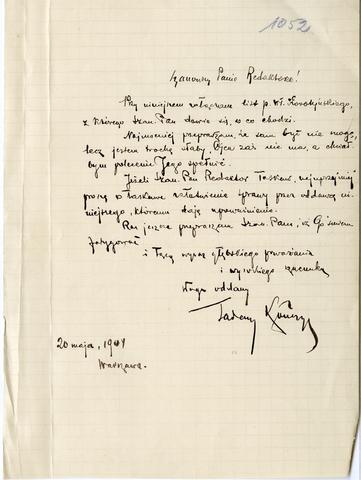 1052
Szanowny Panie Redaktorze!
Przy niniejszem załączam list p. Wł. Korotyńskiego,
z którego Szan. Pan dowie się, o co chodzi.
Najmocniej przepraszam, że sam być nie mogę,
lecz jestem trochę słaby, Ojca zaś nie ma, a chciał-
bym polecenie Jego spełnić.
Jeżeli Szan. Pan Redaktor łaskaw, najuprzejmiej
proszę o łaskawe załatwienie sprawy przez oddawcę ni-
niejszego, któremu daję upoważnienie.
Raz jeszcze przepraszam Szan. Pana, iż Go śmiem
fatygować
i łączę wyrazy głębokiego poważania
i wysokiego szacunku
sługa oddany
Tadeusz
20 maja, 1904
Warszawa.